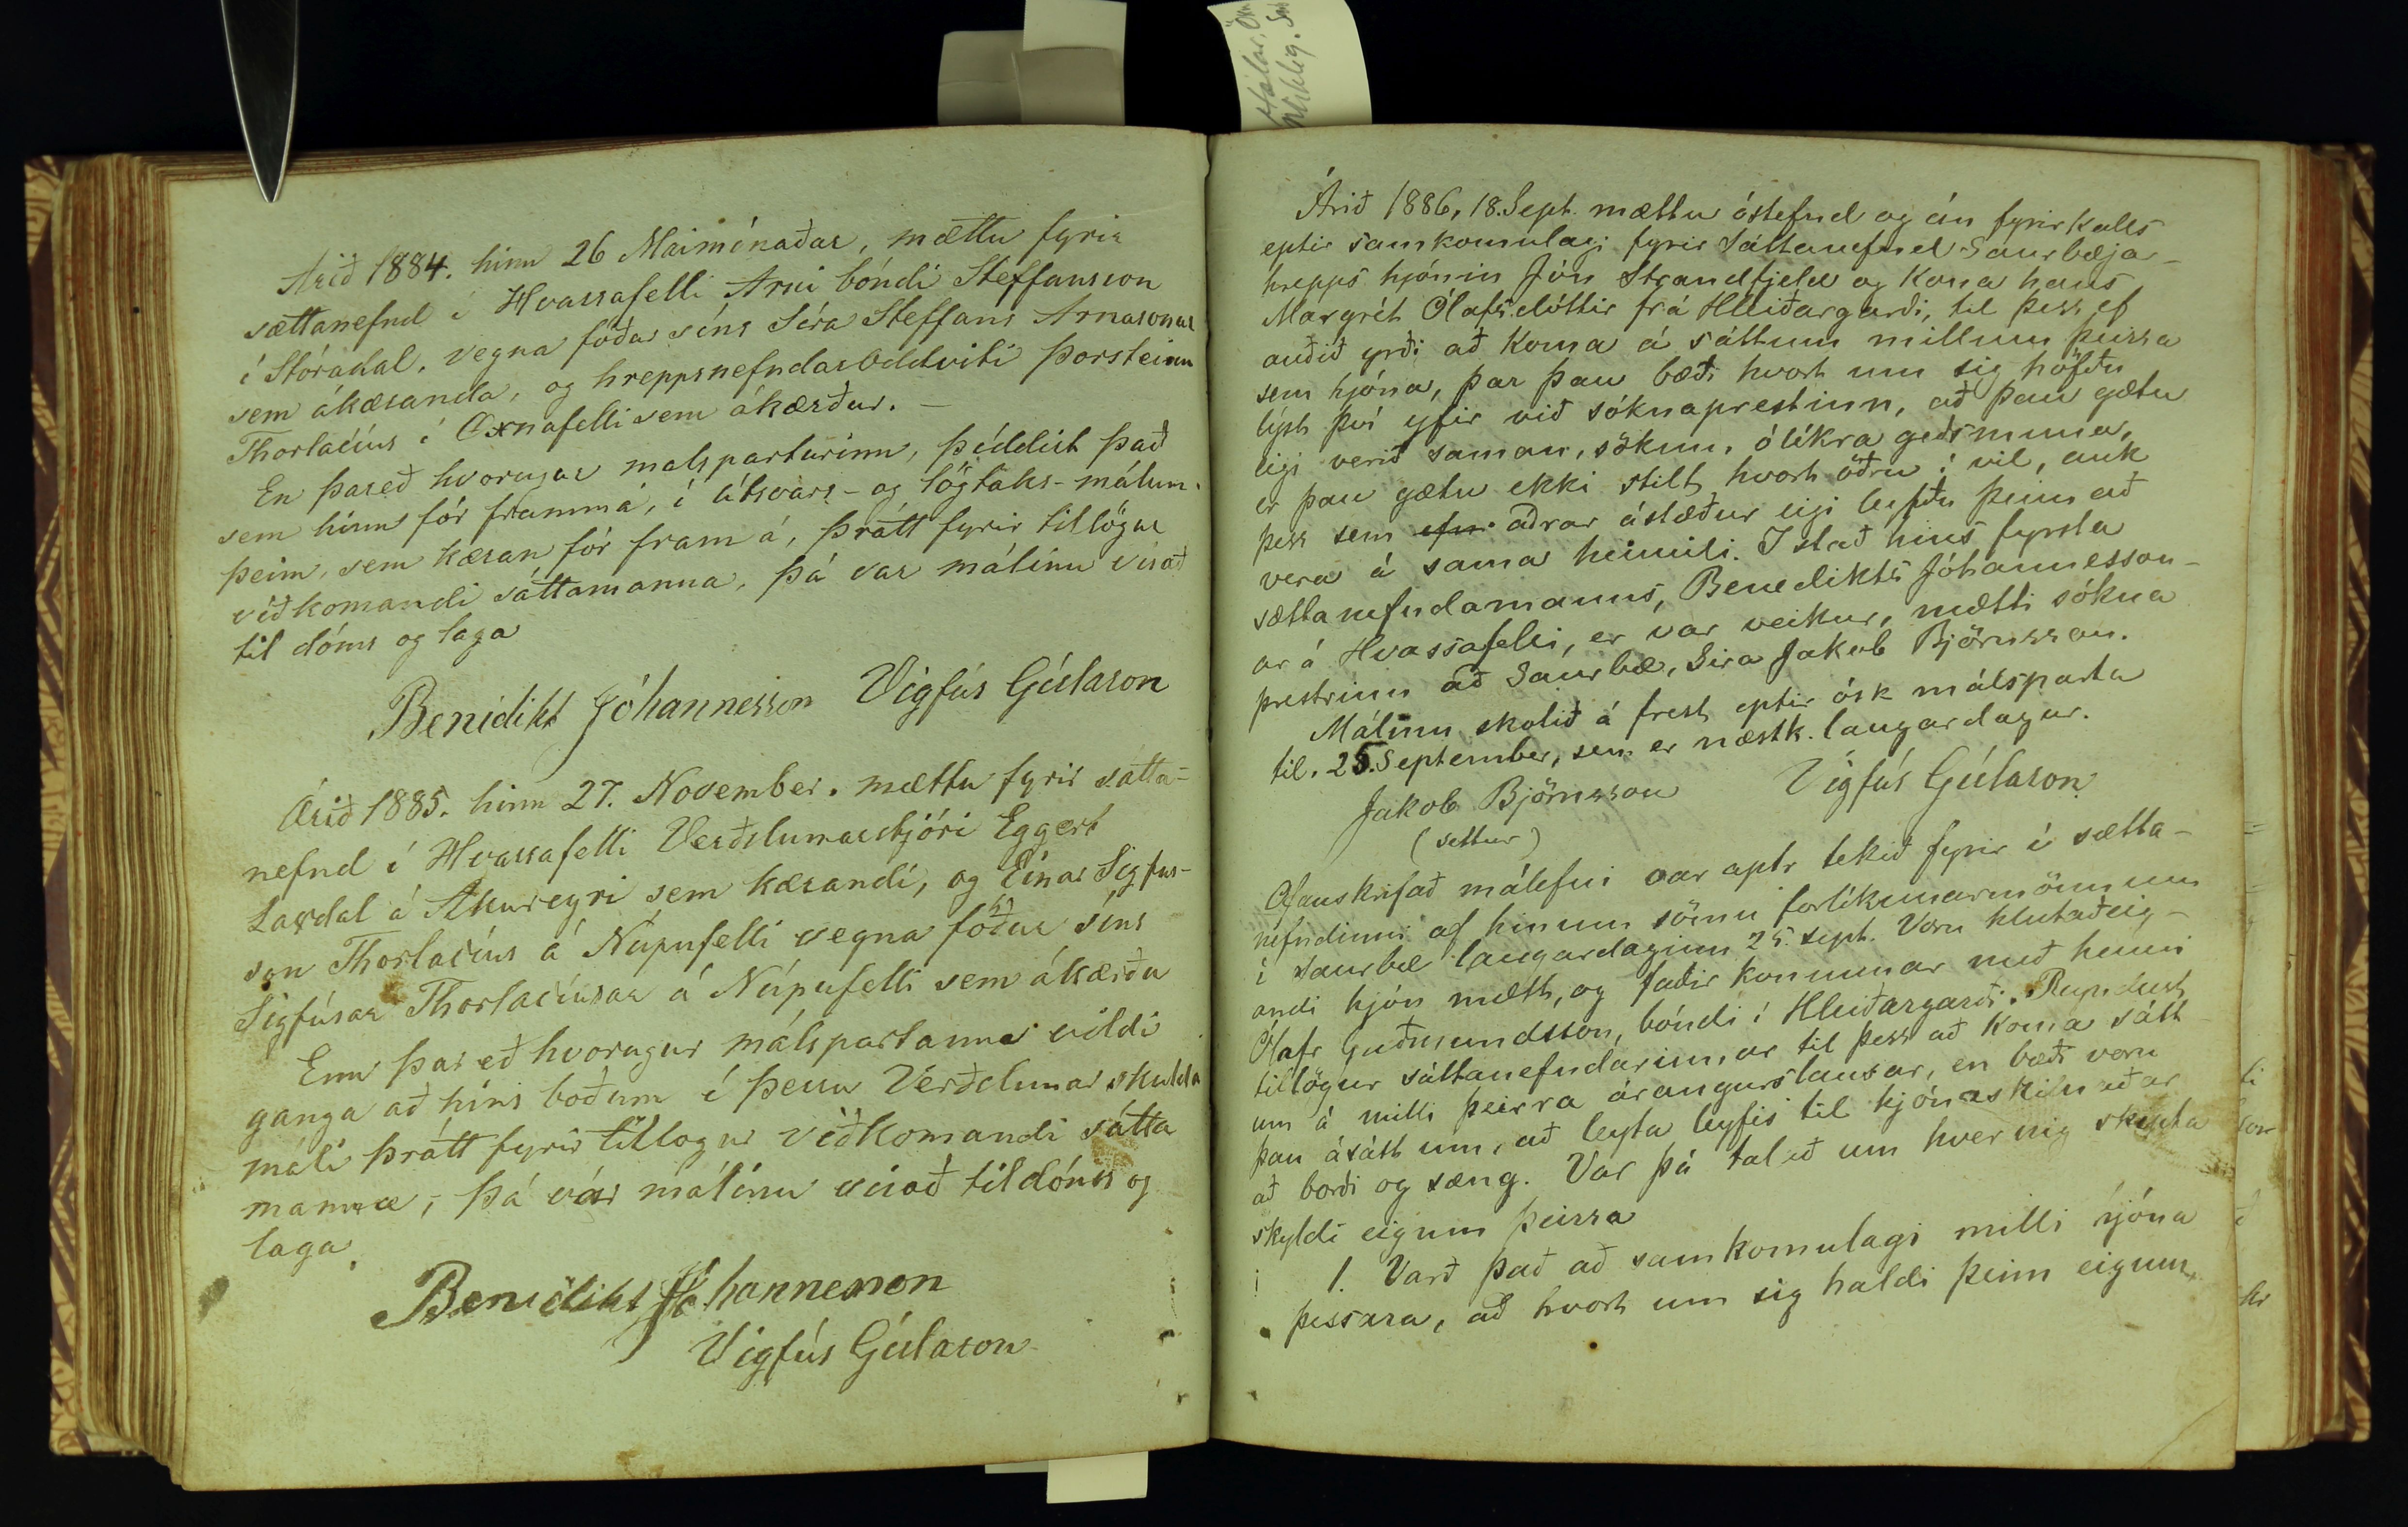 Árið 1884. hinn 26 Maimónaðar, mættu fyrir
sættanefnd í Hvassafelli Arni bóndi Steffansson
í Stóradal, vegna föður síns Séra Steffans Arnasonar
sem ákæranda, og hreppsnefndaroddviti Þorsteinn
Thorlacíus í Öxnafelli sem ákærður. –
En þareð hvorugur malsparturinn, þiddist það
sem hinn fór frammá, í útsvars- og lögtaks-málum
þeim, sem kæran fór fram á, þrátt fyrir tillögur
viðkomandi sáttamanna, þá var málinu vísað
til dóms og laga
Benidikt Jóhannesson Vigfús Gíslason
Árið 1885. hinn 27. November. mættu fyrir sátta-
nefnd í Hvassafelli Verðslunarstjóri Eggert
Laxdal á Akureyri sem kærandi, og Einar Sigfus-
son Thorlacíus á Núpufelli vegna föður síns
Sigfúsar Thorlacíusar á Núpufelli sem ákærðu
Enn þar eð hvorugur málspartanna vildi
ganga að hins boðum í þessu Verðslunar skulda
máli þrátt fyrir tillogur viðkomandi sátta
manna, þá var málinu vísað til dóms og
laga.
Benidikt Jóhannesson
Vigfús Gíslason
Árið 1886, 18. Sept. mættu óstefnd og án fyrirkalls
eptir samkomulagi fyrir Sáttanefnd Saurbæjar-
hrepps hjónin Jón Strandfjeld og kona hans
Margrét Ólafsdóttir frá Hleiðargarði, til þess ef
auðið yrði að koma á sáttum millum þeirra
sem hjóna, þar þau bæði hvort um sig höfðu
lýst því yfir við sóknaprestinn, að þau gætu
eigi verið saman, sökum, ólíkra geðsmuna,
er þau gætu ekki stilt hvort öðru í vil, auk
þess sem aðrar ástæður eigi leyfðu þeim að
vera á sama heimili. I stað hins fyrsta
sættanefndamanns, Benedikts Jóhannesson-
ar á Hvassafelli, er var veikur, mætti sókna
prestrinn að Saurbæ, Sira Jakob Björnsson.
Málinu skotið á frest eptir ósk málsparta
til. 25. September, sem er næstk. laugardagur.
Jakob Björnsson Vigfús Gíslason
(settur)
Ofanskrifað málefni var aptr tekið fyrir í sætta-
nefndinni af hinum sömu forlíkunarmönnum
í Saurbæ laugardaginn 25. sept. Voru hlutaðeig-
andi hjón mætt, og faðir konunnar með henni
Ólafr Guðmundsson, bóndi í Hleiðargarði. Reyndust
tillögur sáttanefndarinnar til þess að koma sátt-
um á milli þeirra árangurslausar, en bæði voru
þau ásátt um, að leyta leyfis til hjónaskilnaðar
að borði og sæng. Var þá talað um hvernig skipta
skyldi eigum þeirra
1. Varð það að samkomulagi milli hjóna
þessara, að hvort um sig haldi þeim eigum,